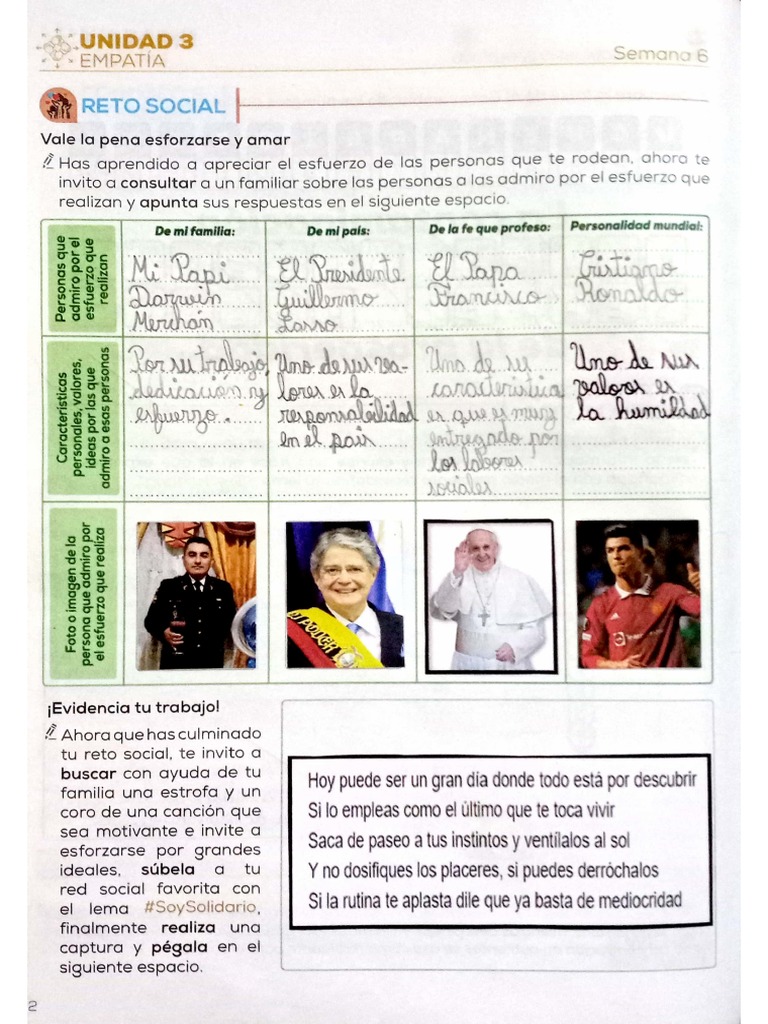 UNIDAD 3
EMPATÍA
Semana 6
RETO SOCIAL
Vale la pena esforzarse y amar
Has aprendido a apreciar el esfuerzo de las personas que te rodean, ahora te
invito a consultar a un familiar sobre las personas a las admiro por el esfuerzo que
realizan y apunta sus respuestas en el siguiente espacio.
Personas que
admiro por el
esfuerzo que
realizan
De mi familia:
Mi Papi
Darwin
Merchán
De mi país:
El Presidente
Guillermo
Lasso
De la fe que profeso:
El Papa
Francisco
Personalidad mundial:
Cristiano
Ronaldo
Características
personales, valores,
ideas por las que
admiro a esas personas
Por su trabajo,
dedicación y
esfuerzo.
Uno de sus va-
lores es la
responsabilidad
en el país
Una de su
caracteristica
es que es muy
entregado por
los labores
sociales
Uno de sus
valores es
la humildad
Foto o imagen de la
persona que admiro por
el esfuerzo que realiza
¡Evidencia tu trabajo!
Ahora que has culminado
tu reto social, te invito a
buscar con ayuda de tu
familia una estrofa y un
coro de una canción que
sea motivante e invite a
esforzarse por grandes
ideales, súbela a tu
red social favorita con
el lema #SoySolidario,
finalmente realiza una
captura y pégala en el
siguiente espacio.
Hoy puede ser un gran día donde todo está por descubrir
Si lo empleas como el último que te toca vivir
Saca de paseo a tus instintos y ventílalos al sol
Y no dosifiques los placeres, si puedes derróchalos
Si la rutina te aplasta dile que ya basta de mediocridad
2